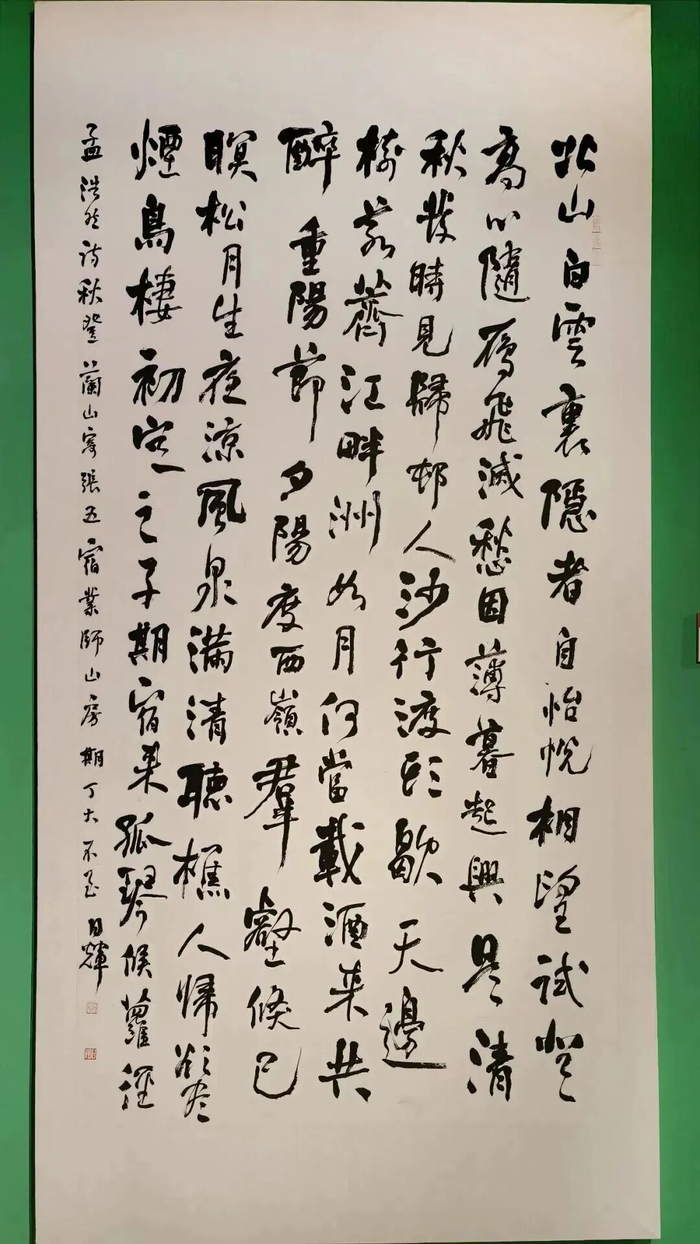 北山白雲裏隱者自怡悅相望試登
高心隨鴈飛滅愁因薄暮起興是清
秋發時見歸邨人沙行渡頭歇天邊
樹若薺江畔洲如月何當載酒來共
醉重陽節夕陽度西嶺羣壑倏已
瞑松月生夜涼風泉滿清聽樵人歸欲盡
煙鳥棲初定之子期宿來孤琴候蘿徑
孟浩然詩秋登蘭山寄張五宿業師山房期丁大不至日輝